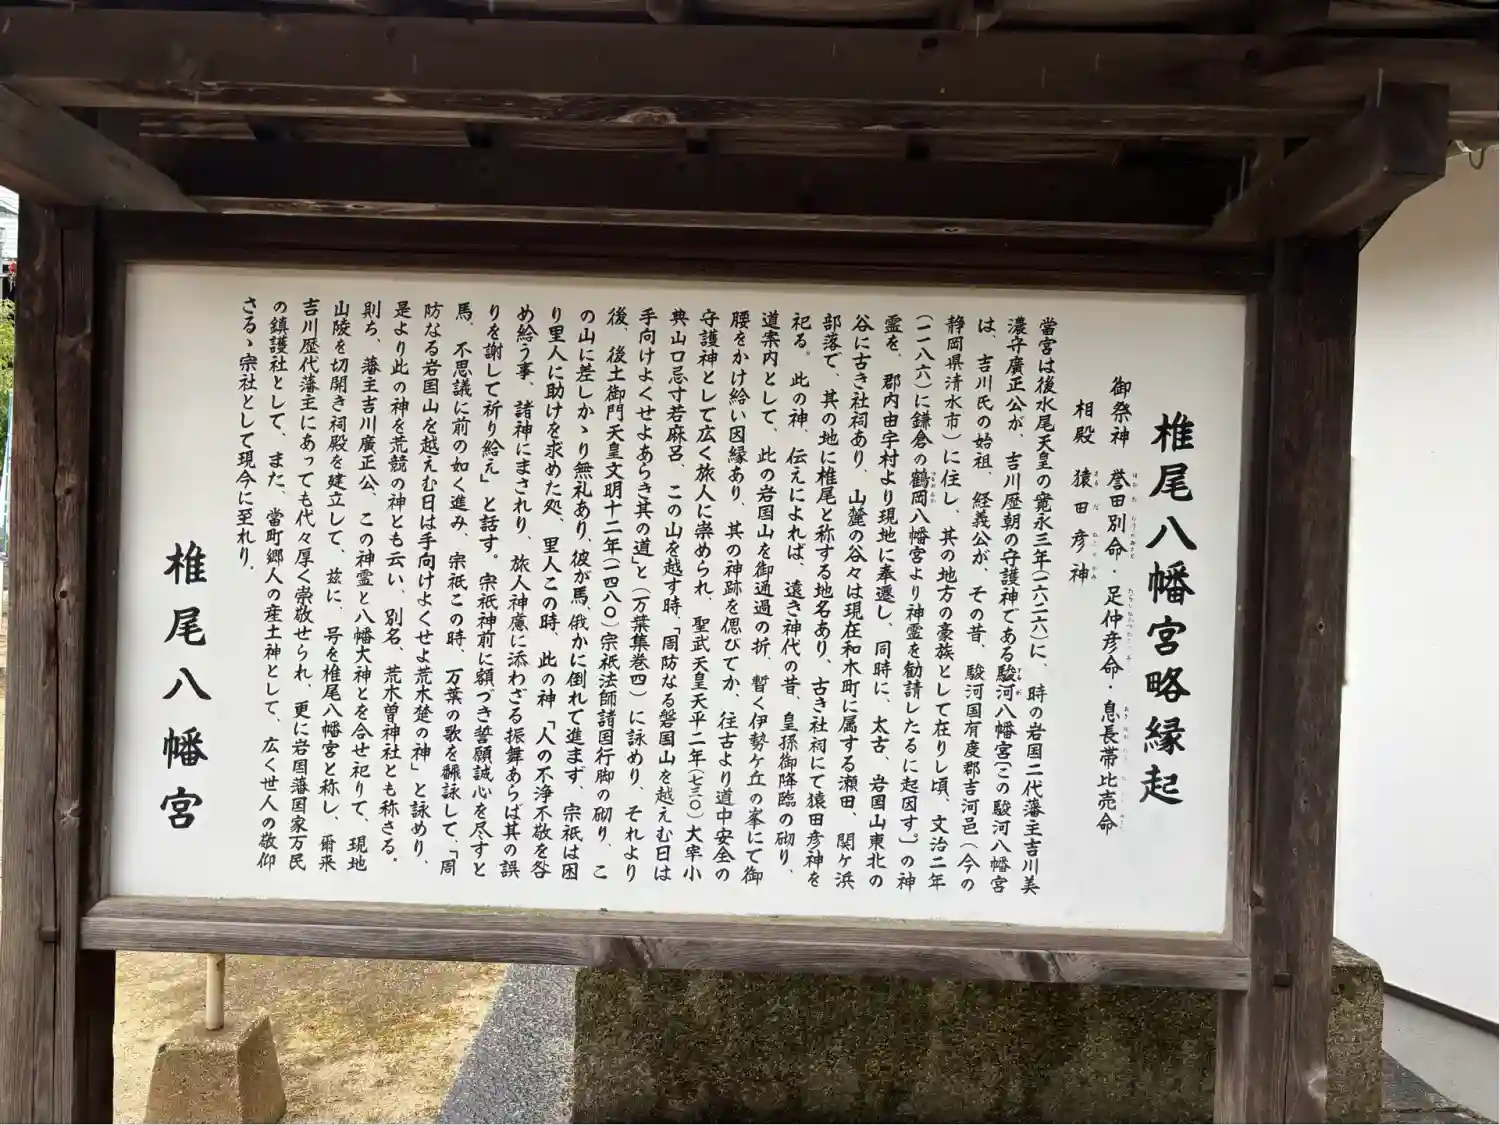 椎尾八幡宮略縁起
御祭神 誉田別命・足仲彦命・息長帯比売命
相殿 猿田彦神
當宮は後水尾天皇の寛永三年(一六二六)に、時の岩国二代藩主吉川美
濃守廣正公が、吉川歴朝の守護神である駿河八幡宮〔この駿河八幡宮
は、吉川氏の始祖、経義公が、その昔、駿河国有度郡吉河邑(今の
静岡県清水市)に住し、其の地方の豪族として在りし頃、文治二年
(一一八六)に鎌倉の鶴岡八幡宮より神霊を勧請したるに起因す。〕の神
霊を、郡内由宇村より現地に奉遷し、同時に、太古、岩国山東北の
谷に古き社祠あり、山麓の谷々は現在和木町に属する瀬田、関ケ浜
部落で、其の地に椎尾と称する地名あり、古き社祠にて猿田彦神を
祀る。此の神、伝えによれば、遠き神代の昔、皇孫御降臨の砌り、
道案内として、此の岩国山を御通過の折、暫く伊勢ケ丘の峯にて御
腰をかけ給い因縁あり、其の神跡を偲びてか、往古より道中安全の
守護神として広く旅人に崇められ、聖武天皇天平二年(七三〇)大宰小
典山口忌寸若麻呂、この山を越す時、「周防なる磐国山を越えむ日は
手向けよくせよあらき其の道」と(万葉集巻四)に詠めり、それより
後、後土御門天皇文明十二年(一四八〇)宗祇法師諸国行脚の砌り、こ
の山に差しかゝり無礼あり、彼が馬、俄かに倒れて進まず、宗祇は困
り里人に助けを求めた処、里人この時、此の神「人の不浄不敬を咎
め給う事、諸神にまされり、旅人神慮に添わざる振舞あらば其の誤
りを謝して祈り給え」と話す。宗祇神前に額づき誓願誠心を尽すと
馬、不思議に前の如く進み、宗祇この時、万葉の歌を飜詠して、「周
防なる岩国山を越えむ日は手向けよくせよ荒木楚の神」と詠めり、
是より此の神を荒競の神とも云い、別名、荒木曽神社とも称さる。
則ち、藩主吉川廣正公、この神霊と八幡大神とを合せ祀りて、現地
山陵を切開き祠殿を建立して、茲に、号を椎尾八幡宮と称し、爾来
吉川歴代藩主にあっても代々厚く崇敬せられ、更に岩国藩国家万民
の鎮護社として、また、當町郷人の産土神として、広く世人の敬仰
さるゝ宗社として現今に至れり。
椎尾八幡宮